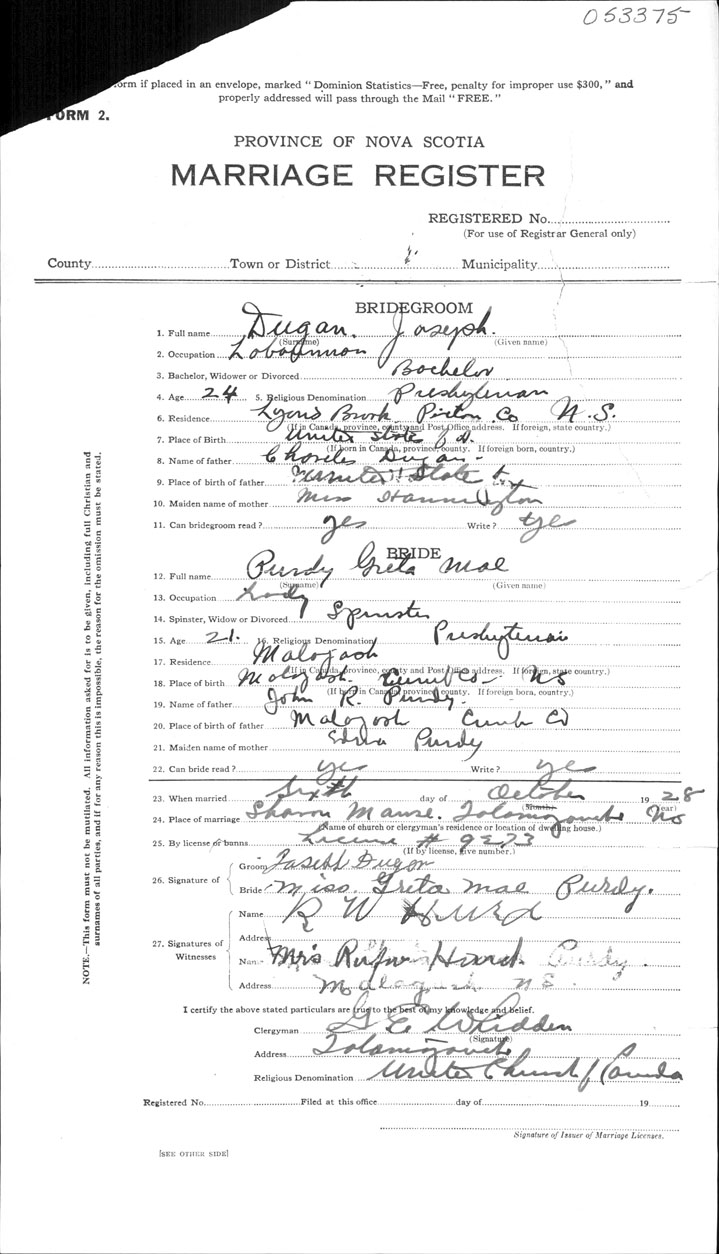 053375
form if placed in an envelope, marked "Dominion Statistics—Free, penalty for improper use $300," and
properly addressed will pass through the Mail "FREE."
FORM 2.
PROVINCE OF NOVA SCOTIA
MARRIAGE REGISTER
REGISTERED No.
(For use of Registrar General only)
County Town or District Municipality
BRIDEGROOM
1. Full name Dugan, Joseph.
(Surname) (Given name)
2. Occupation
3. Bachelor, Widower or Divorced Bachelor
4. Age 24 5. Religious Denomination Presbyterian
6. Residence Lyons Brook Pictou Co N.S.
(If in Canada, province, county and Post Office address. If foreign, state country.)
7. Place of Birth United State
(If born in Canada, province, county. If foreign born, country.)
8. Name of father Charles Dugan
9. Place of birth of father United State
10. Maiden name of mother Miss
11. Can bridegroom read? yes Write? yes
BRIDE
12. Full name Purdy Greta Mae
(Surname) (Given name)
13. Occupation Lady
14. Spinster, Widow or Divorced Spinster
15. Age 21. 16. Religious Denomination Presbyterian
17. Residence Malagash
(If in Canada, province, county and Post Office address. If foreign, state country.)
18. Place of Birth Malagash. Cumb Co- NS
(If born in Canada, province, county. If foreign born, country.)
19. Name of father John R. Purdy.
20. Place of birth of father Malagash Cumb Co
21. Maiden name of mother Purdy
22. Can bride read? yes Write? yes
23. When married Sixth day of October 1928
(Month) (Year)
24. Place of marriage Sharon Manse. Tatamagouche NS
(Name of church or clergyman's residence or location of dwelling house.)
25. By license or banns License # 9273
(If by license, give number.)
26. Signature of
Groom Joseph Dugan
Bride Miss. Greta Mae Purdy.
27. Signatures of Witnesses
Name R W Hurd
Address
Name Mrs Hurd Purdy
Address Malagash NS.
I certify the above stated particulars are true to the best of my knowledge and belief.
Clergyman G E Whidden
(Signature)
Address Tatamagouche
Religious Denomination United Church of Canada
Registered No. Filed at this office day of 19
Signature of Issuer of Marriage Licenses.
[SEE OTHER SIDE]
NOTE.—This form must not be mutilated. All information asked for is to be given, including full Christian and
surnames of all parties, and if for any reason this is impossible, the reason for the omission must be stated.